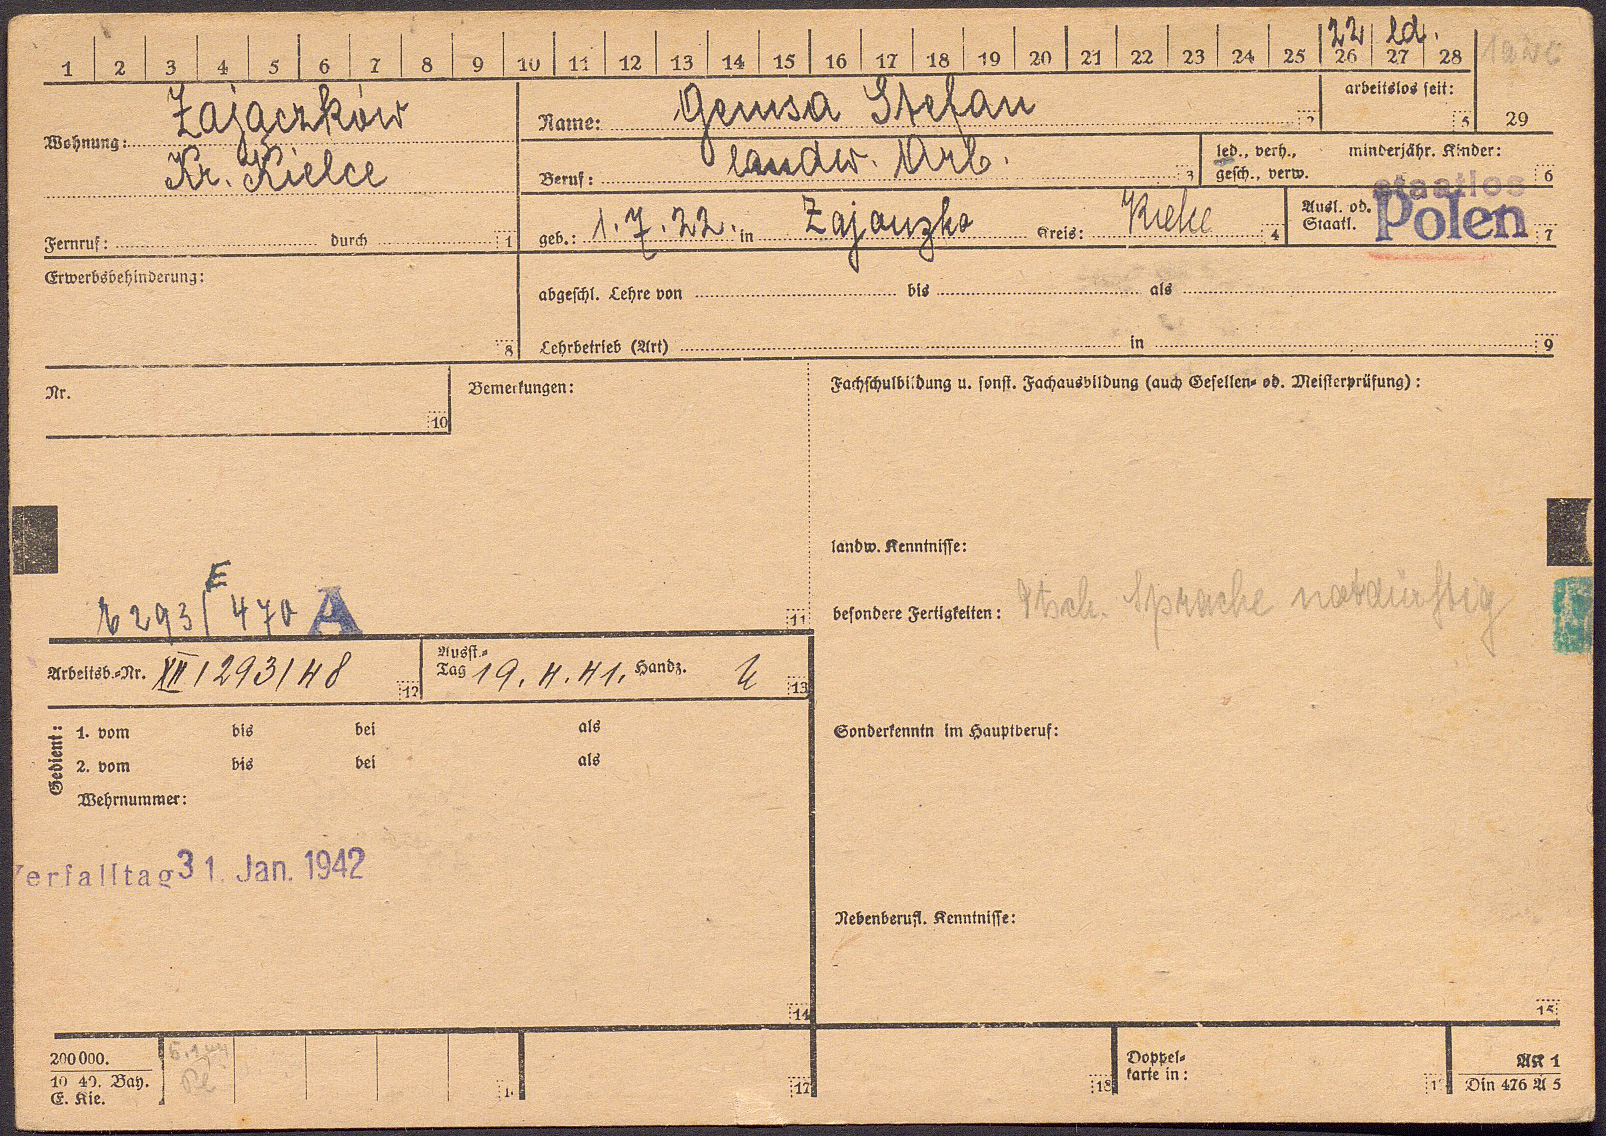 22 led.
1 2 3 4 5 6 7 8 9 10 11 12 13 14 15 16 17 18 19 20 21 22 23 24 25 26 27 28
Zajączków
Wohnung:
Kr. Kielce
Fernruf: durch 1
Name: Gemsa Stefan 2
arbeitslos seit: 5
29
Beruf: landw. Arb. 3
led., verh., gesch., verw.
minderjähr. Kinder: 6
geb.: 1.7.22. in Zajanzko Kreis: Kielce 4
Ausl. od. Staatl. staatlos Polen 7
Erwerbsbehinderung: 8
abgeschl. Lehre von bis als
Lehrbetrieb (Art) in 9
Nr. 10
Bemerkungen:
Fachschulbildung u. sonst. Fachausbildung (auch Gesellen- od. Meisterprüfung):
landw. Kenntnisse:
E
6293/470 A 11
besondere Fertigkeiten: dtsch. Sprache notdürftig
Arbeitsb.-Nr. XII/293/48 12
Ausst.-Tag 19.4.41. Handz. 13
Gedient:
1. vom bis bei als
2. vom bis bei als
Wehrnummer:
Sonderkenntn im Hauptberuf:
Verfalltag 31. Jan. 1942
Nebenberufl. Kenntnisse:
14
15
200000.
10 40. Bay.
E. Kie.
17
18
Doppel-
karte in:
AK 1
Din 476 A 5